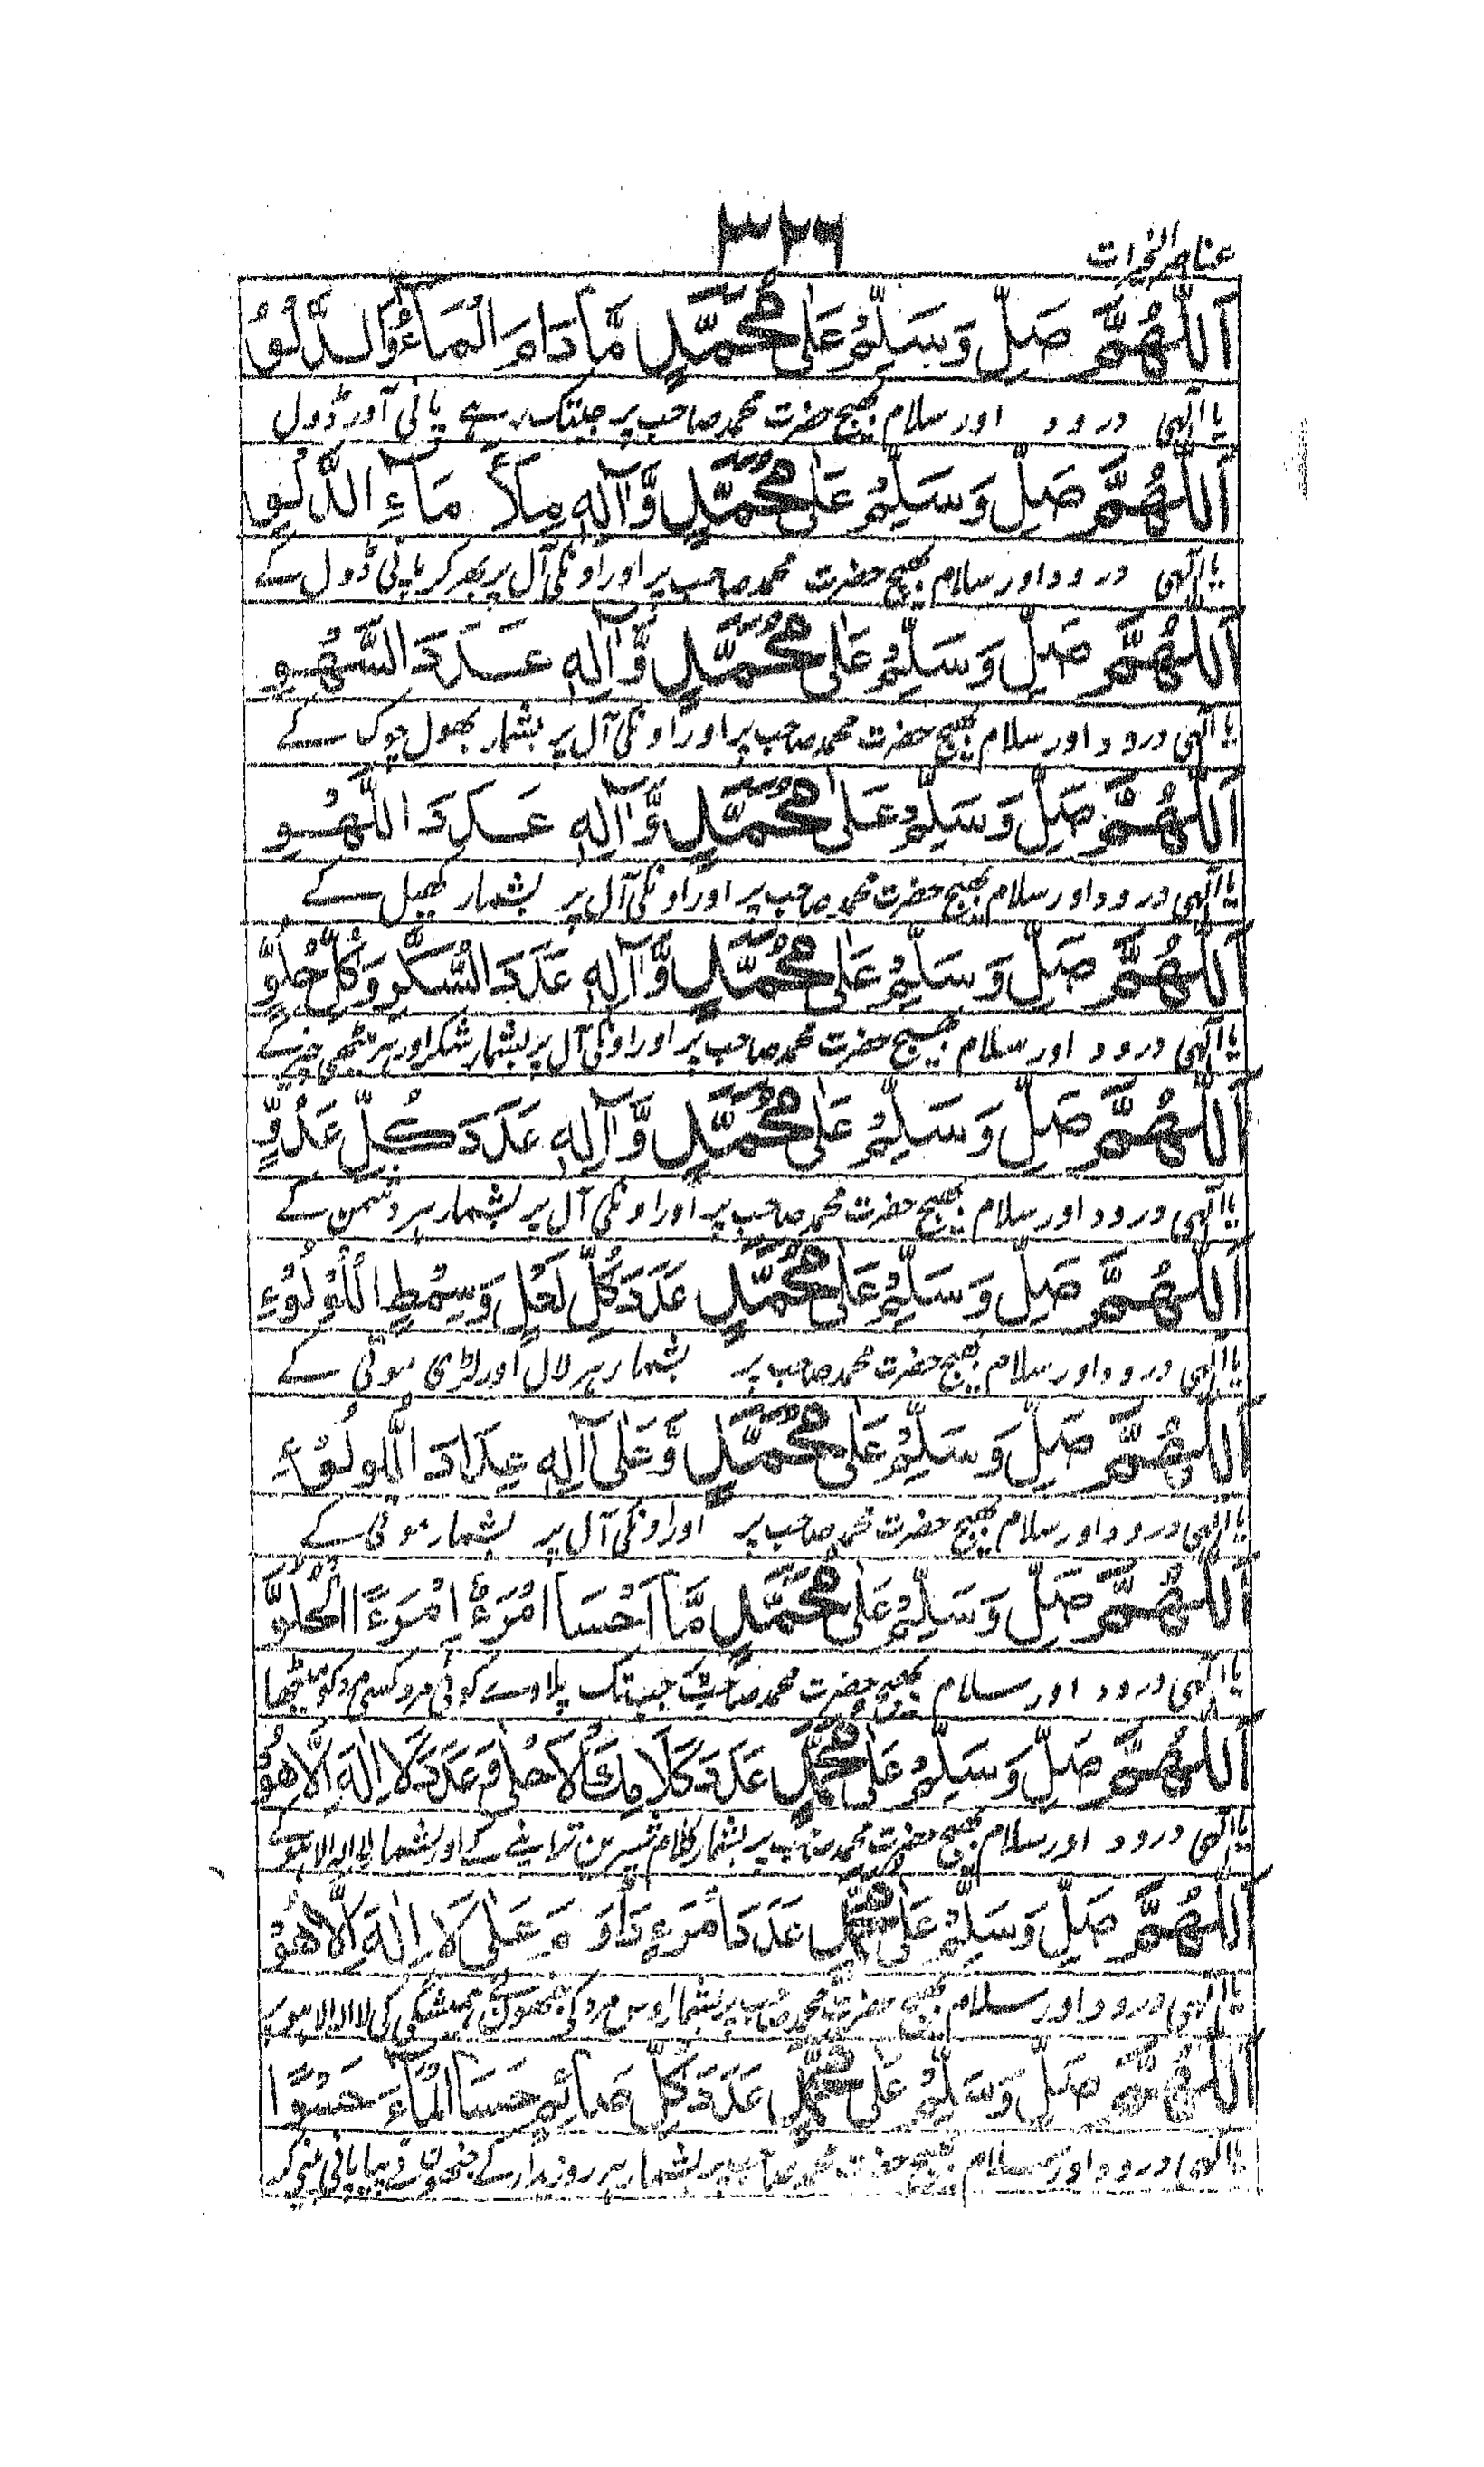 عناصر الخیرات
۳۲۶
اَللّٰهُمَّ صَلِّ وَسَلِّمْ عَلٰى مُحَمَّدٍ مَّا دَامَ الْمَآءُ وَالدَّلْوُ
یا الٰہی درود اور سلام بھیج حضرت محمد صاحب پر جبتک رہے پانی اور ڈول
اَللّٰهُمَّ صَلِّ وَسَلِّمْ عَلٰى مُحَمَّدٍ وَّاٰلِهٖ مِلَأَ مَآءِ الدَّلْوِ
یا الٰہی درود اور سلام بھیج حضرت محمد صاحب پر اور اونکی آل پر بھر کر پانی ڈول کے
اَللّٰهُمَّ صَلِّ وَسَلِّمْ عَلٰى مُحَمَّدٍ وَّاٰلِهٖ عَدَدَ السَّهْوِ
یا الٰہی درود اور سلام بھیج حضرت محمد صاحب پر اور اونکی آل پر بشمار بھول چوک کے
اَللّٰهُمَّ صَلِّ وَسَلِّمْ عَلٰى مُحَمَّدٍ وَّاٰلِهٖ عَدَدَ اللَّهْوِ
یا الٰہی درود اور سلام بھیج حضرت محمد صاحب پر اور اونکی آل پر بشمار کھیل کے
اَللّٰهُمَّ صَلِّ وَسَلِّمْ عَلٰى مُحَمَّدٍ وَّاٰلِهٖ عَدَدَ السُّكَّرِ وَكُلِّ حُلْوٍ
یا الٰہی درود اور سلام بھیج حضرت محمد صاحب پر اور اونکی آل پر بشمار شکر اور ہر میٹھی چیز کے
اَللّٰهُمَّ صَلِّ وَسَلِّمْ عَلٰى مُحَمَّدٍ وَّاٰلِهٖ عَدَدَ كُلِّ عَدُوٍّ
یا الٰہی درود اور سلام بھیج حضرت محمد صاحب پر اور اونکی آل پر بشمار ہر دشمن کے
اَللّٰهُمَّ صَلِّ وَسَلِّمْ عَلٰى مُحَمَّدٍ عَدَدَ كُلِّ لَعْلٍ وَسِمْطِ اللُّؤْلُؤِ
یا الٰہی درود اور سلام بھیج حضرت محمد صاحب پر بشمار ہر لال اور لڑی موتی کے
اَللّٰهُمَّ صَلِّ وَسَلِّمْ عَلٰى مُحَمَّدٍ وَّعَلٰى اٰلِهٖ عِدَادَ اللُّولُؤِ
یا الٰہی درود اور سلام بھیج حضرت محمد صاحب پر اور اونکی آل پر بشمار موتی کے
اَللّٰهُمَّ صَلِّ وَسَلِّمْ عَلٰى مُحَمَّدٍ مَّا اَحْسَا امْرَءٌ اِمْرَءًا الْحُلْوَ
یا الٰہی درود اور سلام بھیج حضرت محمد صاحب پر جب تک پلاوے کوئی مرد کسی مرد کو میٹھا
اَللّٰهُمَّ صَلِّ وَسَلِّمْ عَلٰى مُحَمَّدٍ عَدَدَ كَلَامِكَ الْاَحْلٰى وَعَدَدَ لَا اِلٰهَ اِلَّا هُوَ
یا الٰہی درود اور سلام بھیج حضرت محمد صاحب پر بشمار کلام شیریں تر اپنے کے اور بشمار لا الہ الا ہو کے
اَللّٰهُمَّ صَلِّ وَسَلِّمْ عَلٰى مُحَمَّدٍ عَدَدَ امْرَءٍ دَاوَمَ عَلٰى لَا اِلٰهَ اِلَّا هُوَ
یا الٰہی درود اور سلام بھیج حضرت محمد صاحب پر بشمار اوس مرد کی جنھوں نے ہمیشگی کی لا الہ الا ہو پر
اَللّٰهُمَّ صَلِّ وَسَلِّمْ عَلٰى مُحَمَّدٍ عَدَدَ كُلِّ صَائِمٍ حَسَا الْمَآءَ حَسْوًا
یا الٰہی درود اور سلام بھیج حضرت محمد صاحب پر بشمار ہر روزہ دار کے جنھوں نے پیا پانی